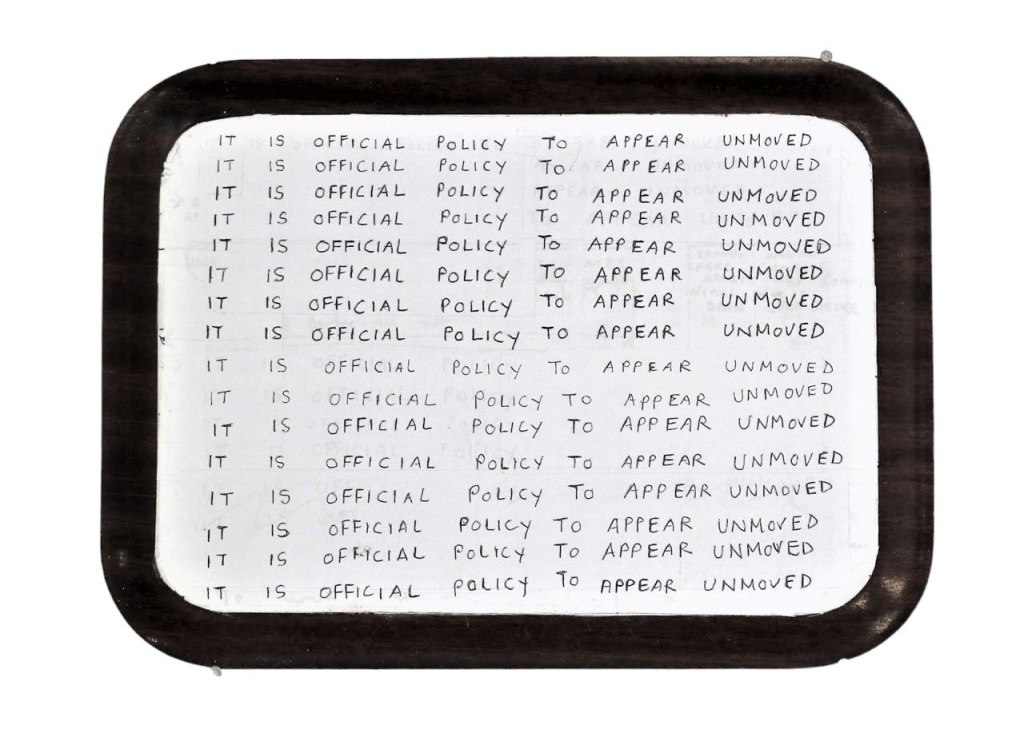 IT IS OFFICIAL POLICY TO APPEAR UNMOVED
IT IS OFFICIAL POLICY TO APPEAR UNMOVED
IT IS OFFICIAL POLICY TO APPEAR UNMOVED
IT IS OFFICIAL POLICY TO APPEAR UNMOVED
IT IS OFFICIAL POLICY TO APPEAR UNMOVED
IT IS OFFICIAL POLICY TO APPEAR UNMOVED
IT IS OFFICIAL POLICY TO APPEAR UNMOVED
IT IS OFFICIAL POLICY TO APPEAR UNMOVED
IT IS OFFICIAL POLICY TO APPEAR UNMOVED
IT IS OFFICIAL POLICY TO APPEAR UNMOVED
IT IS OFFICIAL POLICY TO APPEAR UNMOVED
IT IS OFFICIAL POLICY TO APPEAR UNMOVED
IT IS OFFICIAL POLICY TO APPEAR UNMOVED
IT IS OFFICIAL POLICY TO APPEAR UNMOVED
IT IS OFFICIAL POLICY TO APPEAR UNMOVED
IT IS OFFICIAL POLICY TO APPEAR UNMOVED